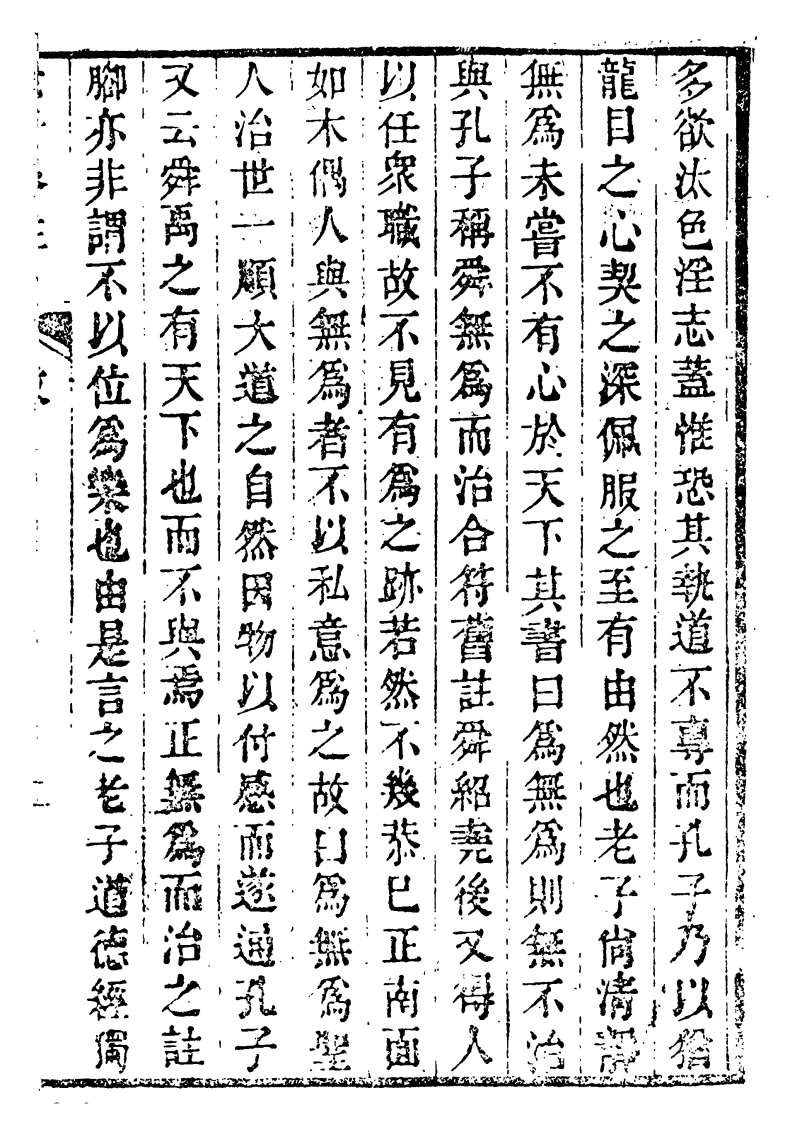 多欲汰色淫志蓋惟恐其執道不專而孔子乃以猶
龍目之心契之深佩服之至有由然也老子尚清靜
無爲未嘗不有心於天下其書曰爲無爲則無不治
與孔子稱舜無爲而治合符舊註舜紹堯後又得人
以任衆職故不見有爲之跡若然不幾恭巳正南面
如木偶人與無爲者不以私意爲之故曰爲無爲聖
人治世一順大道之自然因物以付感而遂通孔子
又云舜禹之有天下也而不與焉正無爲而治之註
腳亦非謂不以位爲樂也由是言之老子道德經獨